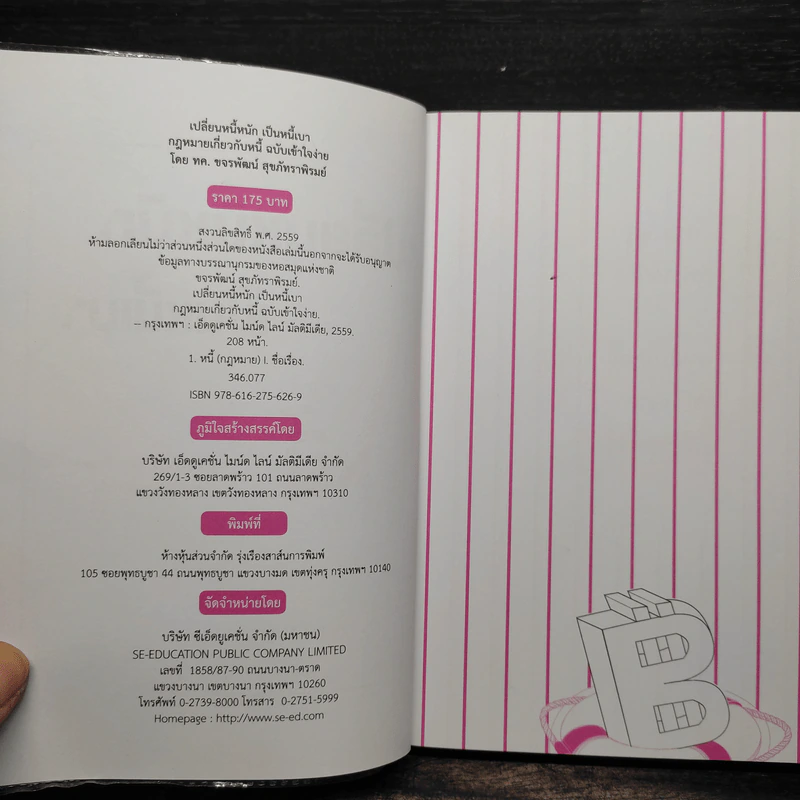 เปลี่ยนหนี้หนัก เป็นหนี้เบา
กฎหมายเกี่ยวกับหนี้ ฉบับเข้าใจง่าย
โดย ทค. ขจรพัฒน์ สุขภัทราพิรมย์
ราคา 175 บาท
สงวนลิขสิทธิ์ พ.ศ. 2559
ห้ามลอกเลียนไม่ว่าส่วนหนึ่งส่วนใดของหนังสือเล่มนี้นอกจากจะได้รับอนุญาต
ข้อมูลทางบรรณานุกรมของหอสมุดแห่งชาติ
ขจรพัฒน์ สุขภัทราพิรมย์.
เปลี่ยนหนี้หนัก เป็นหนี้เบา
กฎหมายเกี่ยวกับหนี้ ฉบับเข้าใจง่าย.
– กรุงเทพฯ : เอ็ดดูเคชั่น ไมน์ด ไลน์ มัลติมีเดีย, 2559.
208 หน้า.
1. หนี้ (กฎหมาย) I. ชื่อเรื่อง.
346.077
ISBN 978-616-275-626-9
ภูมิใจสร้างสรรค์โดย
บริษัท เอ็ดดูเคชั่น ไมน์ด ไลน์ มัลติมีเดีย จำกัด
269/1-3 ซอยลาดพร้าว 101 ถนนลาดพร้าว
แขวงวังทองหลาง เขตวังทองหลาง กรุงเทพฯ 10310
พิมพ์ที่
ห้างหุ้นส่วนจำกัด รุ่งเรืองสาส์นการพิมพ์
105 ซอยพุทธบูชา 44 ถนนพุทธบูชา แขวงบางมด เขตทุ่งครุ กรุงเทพฯ 10140
จัดจำหน่ายโดย
บริษัท ซีเอ็ดยูเคชั่น จำกัด (มหาชน)
SE-EDUCATION PUBLIC COMPANY LIMITED
เลขที่ 1858/87-90 ถนนบางนา-ตราด
แขวงบางนา เขตบางนา กรุงเทพฯ 10260
โทรศัพท์ 0-2739-8000 โทรสาร 0-2751-5999
Homepage : http://www.se-ed.com
B